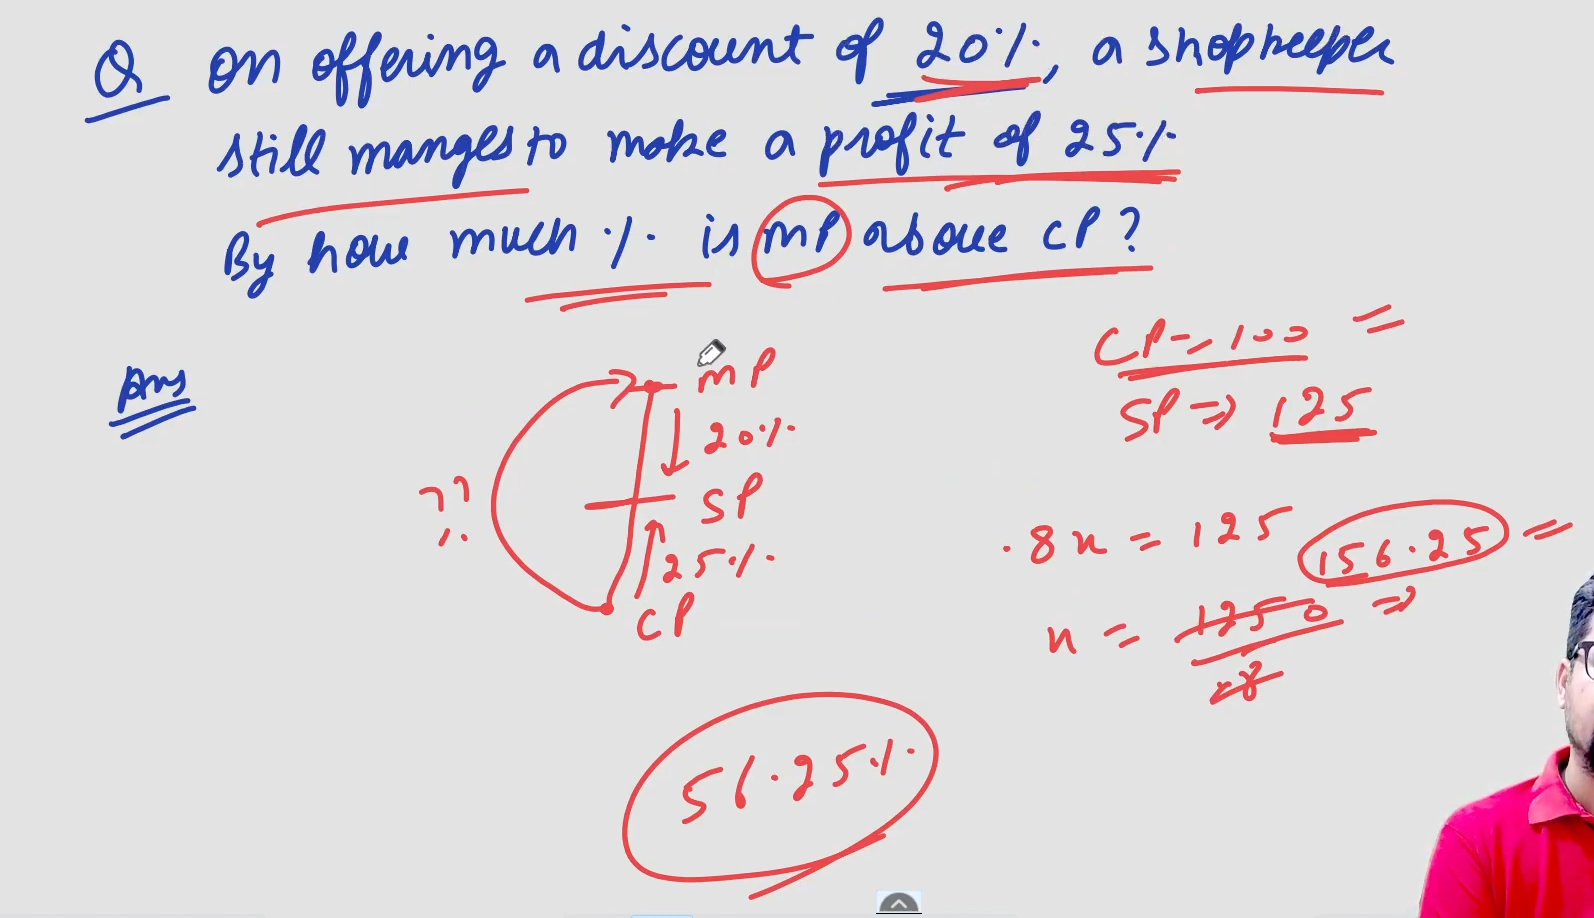 Q on offering a discount of 20%, a shopkeeper
still manges to make a profit of 25%
By how much % is MP above CP?
Ans
MP
20%
SP
25%
CP
??
CP → 100 =
SP ⇒ 125
.8x = 125
x = 1250/8 ⇒ 156.25 =
56.25%